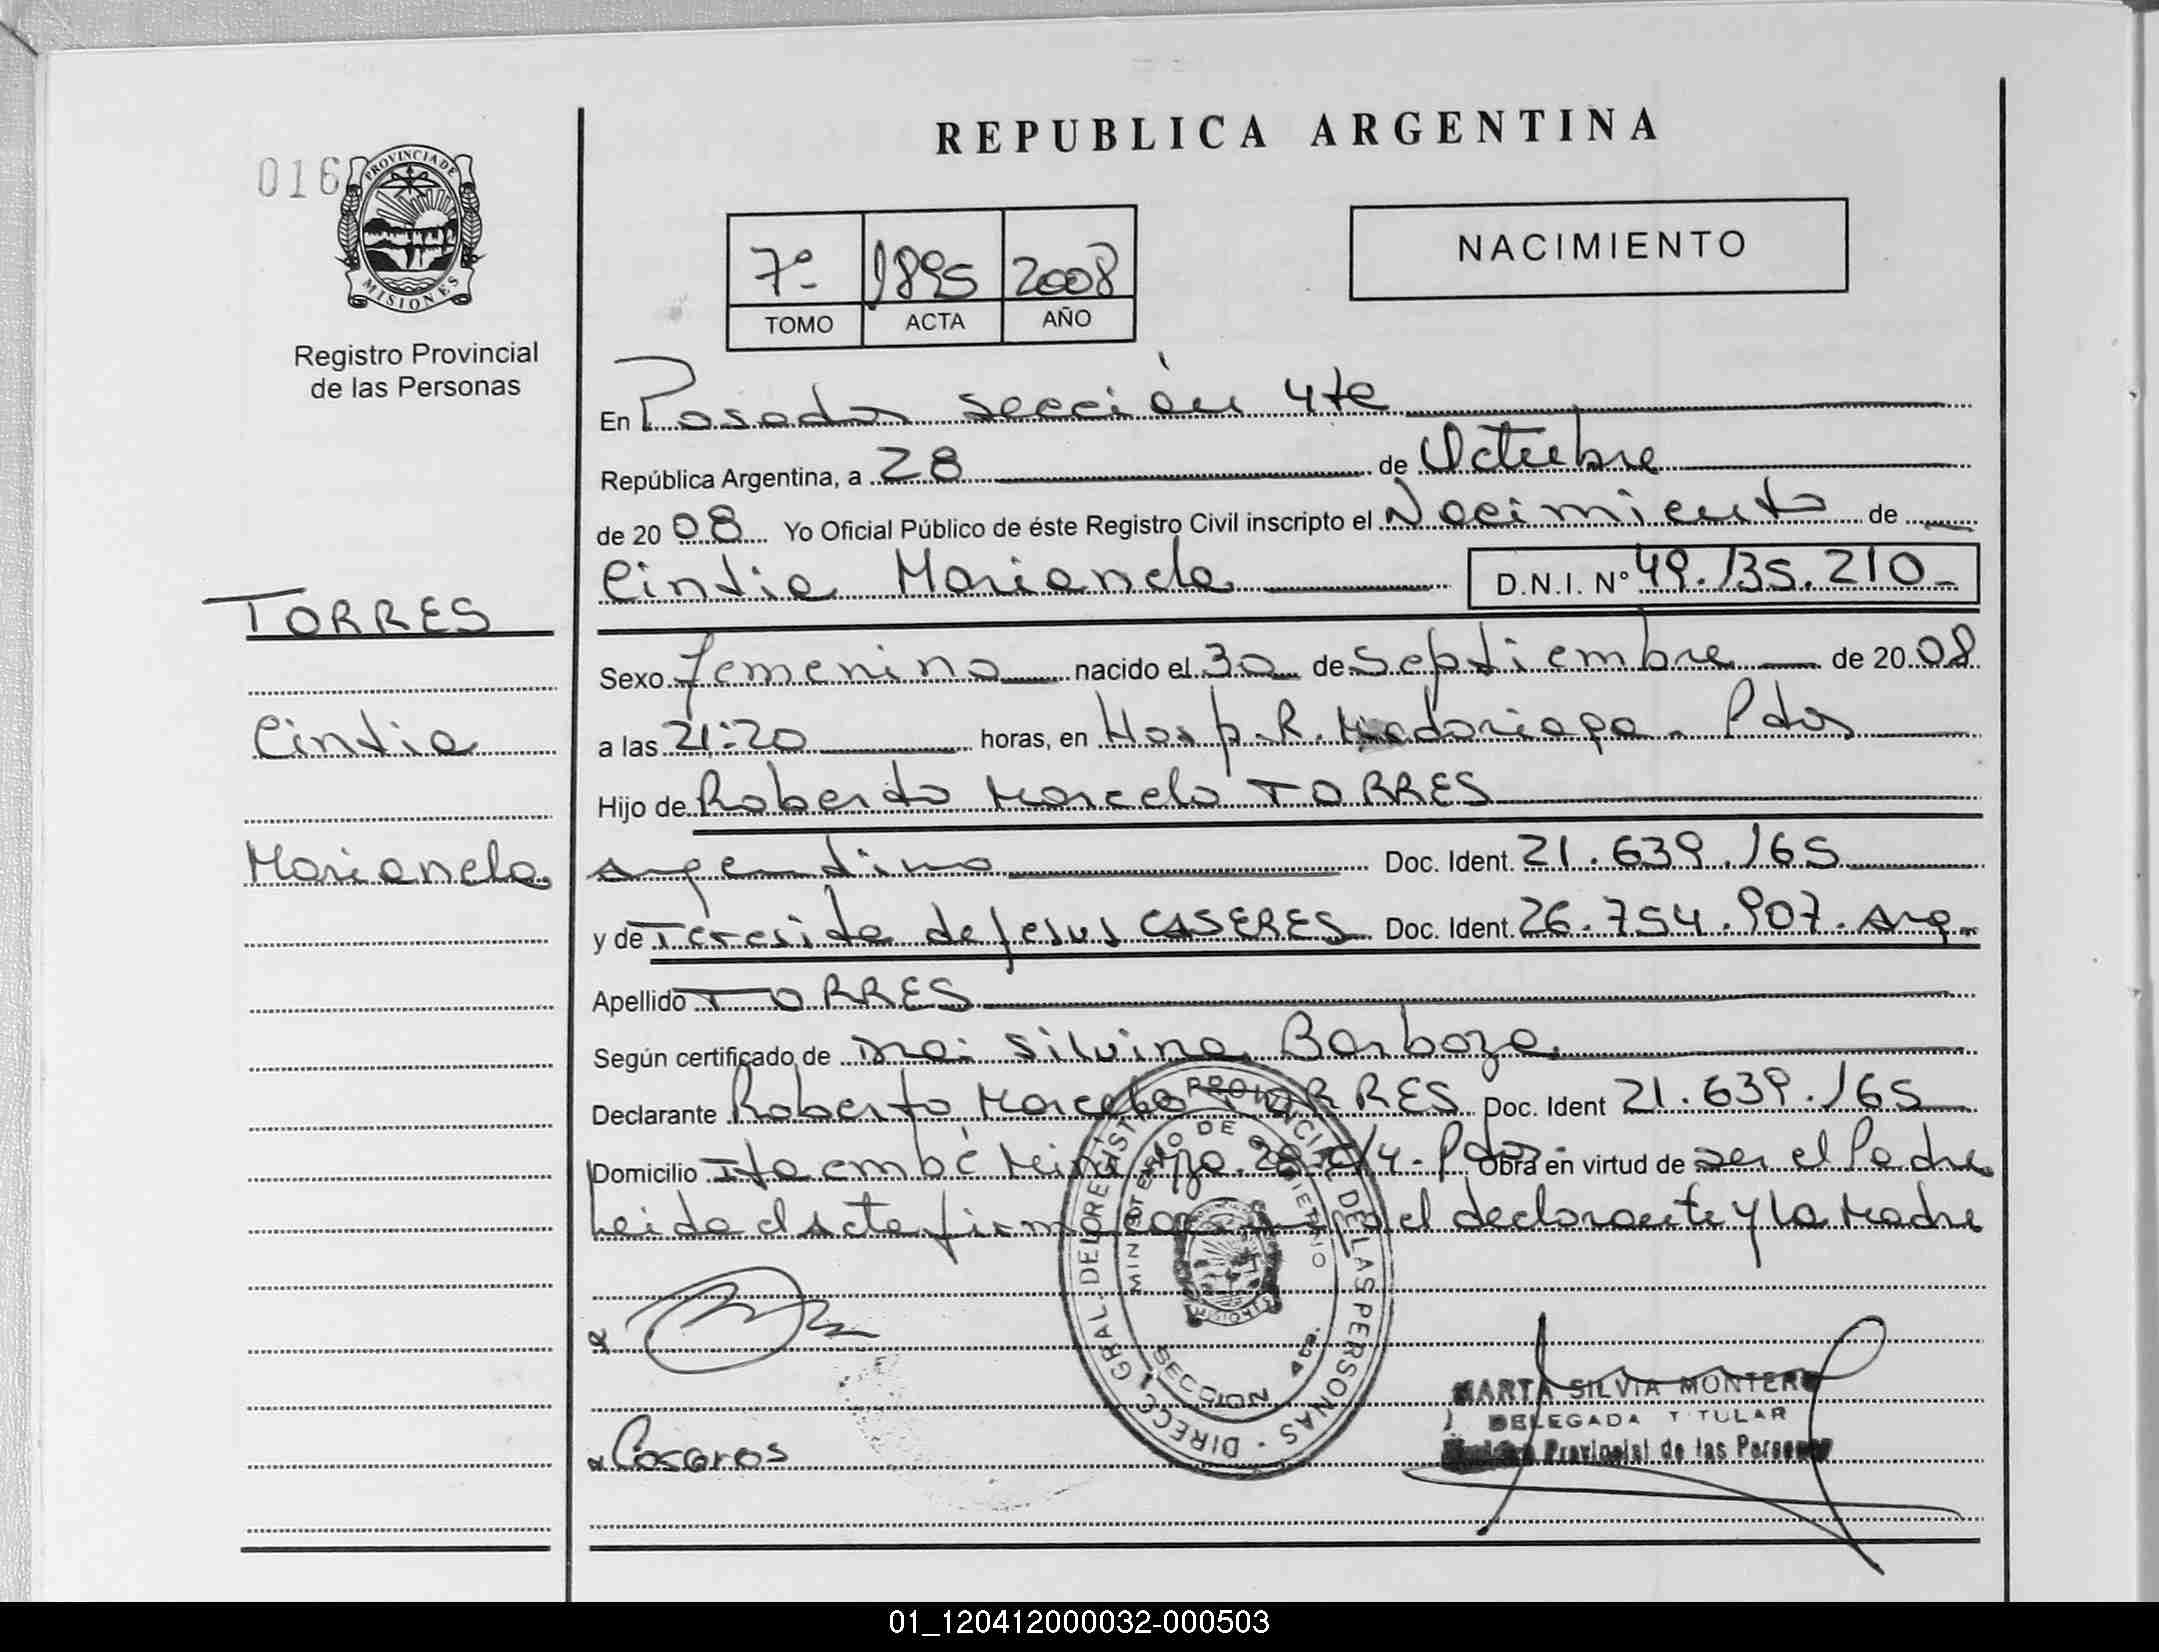 REPUBLICA ARGENTINA
016
PROVINCIA DE
MISIONES
Registro Provincial
de las Personas
NACIMIENTO
7º 1895 2008
TOMO ACTA AÑO
En Posadas sección 4ta
República Argentina, a 28 de Octubre
de 2008 Yo Oficial Público de éste Registro Civil inscripto el Nacimiento de
Cintia Marianela D.N.I. Nº 49.135.210
TORRES
Cintia
Marianela
Sexo femenino nacido el 30 de Septiembre de 2008
a las 21:20 horas, en Hosp. R. Madariaga - Pdas
Hijo de Roberto Marcelo TORRES
argentino Doc. Ident. 21.639.165
y de Teresita de Jesus CASERES Doc. Ident. 26.754.907. Arg.
Apellido TORRES
Según certificado de Dra: Silvina Barboza
Declarante Roberto Marcelo TORRES Doc. Ident 21.639.165
Domicilio Itaembé Mini Mzo. 28 Pdas. Obra en virtud de ser el Padre
Leida el acta firman el declarante y la Madre
DIRECC. GRAL. DEL REGISTRO PROVINCIAL DE LAS PERSONAS
MINISTERIO DE GOBIERNO
SECCION 4ta.
MISIONES
Caseres
MARTA SILVIA MONTERO
DELEGADA TITULAR
Provincial de las Personas
01_120412000032-000503